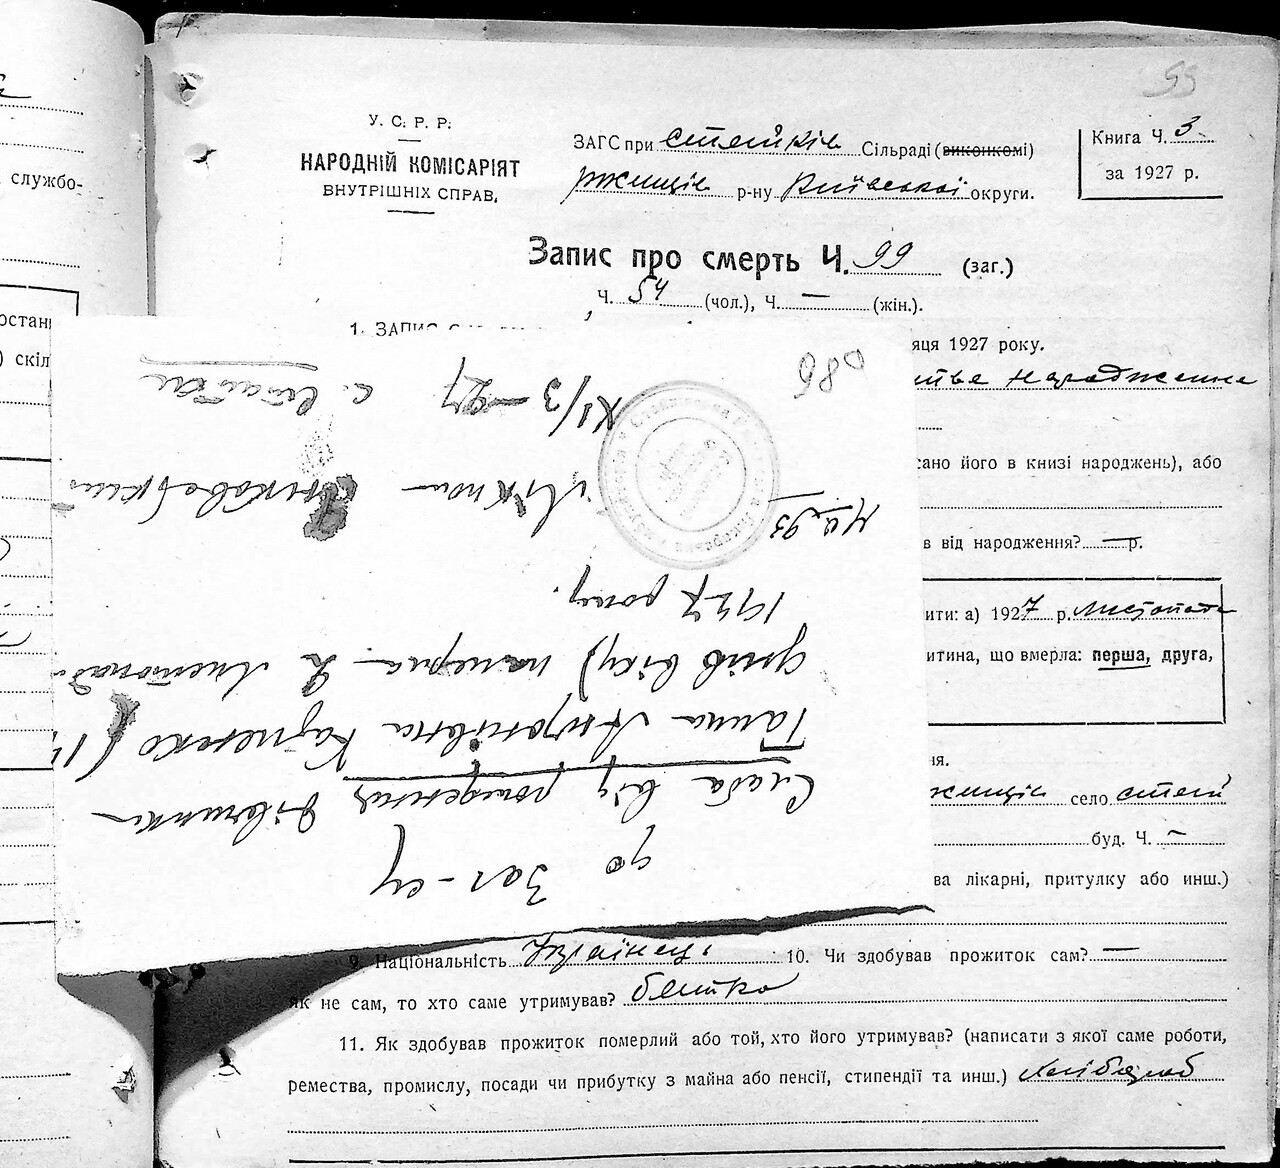 У. С. Р. Р.
НАРОДНІЙ КОМІСАРІЯТ
ВНУТРІШНІХ СПРАВ,
ЗАГС при стайків Сільраді (виконкомі)
ржищів р-ну Київської округи.
Книга Ч. 3
за 1927 р.
55
Запис про смерть Ч. 99 (заг.)
Ч. 54 (чол.), Ч. — (жін.).
1. ЗАПИС
яця 1927 року.
народження
сано його в книзі народжень), або
в від народження? — р.
ити: а) 1927 р. листопада
итина, що вмерла: перша, друга,
ня.
село
буд. Ч. —
ва лікарні, притулку або инш.)
9. Національність Українець. 10. Чи здобував прожиток сам? —
як не сам, то хто саме утримував? батько
11. Як здобував прожиток померлий або той, хто його утримував? (написати з якої саме роботи,
ремества, промислу, посади чи прибутку з майна або пенсії, стипендії та инш.) хлібороб
службо-
останн
) скіл
до Заг-су
Слаба від рождення дівчинка
Ганна Антонівна Кузменко (1
днів віку) померла 2 листопад
1927 року.
№ 93
Лікпом
XI/3—27
с. Стайки
086